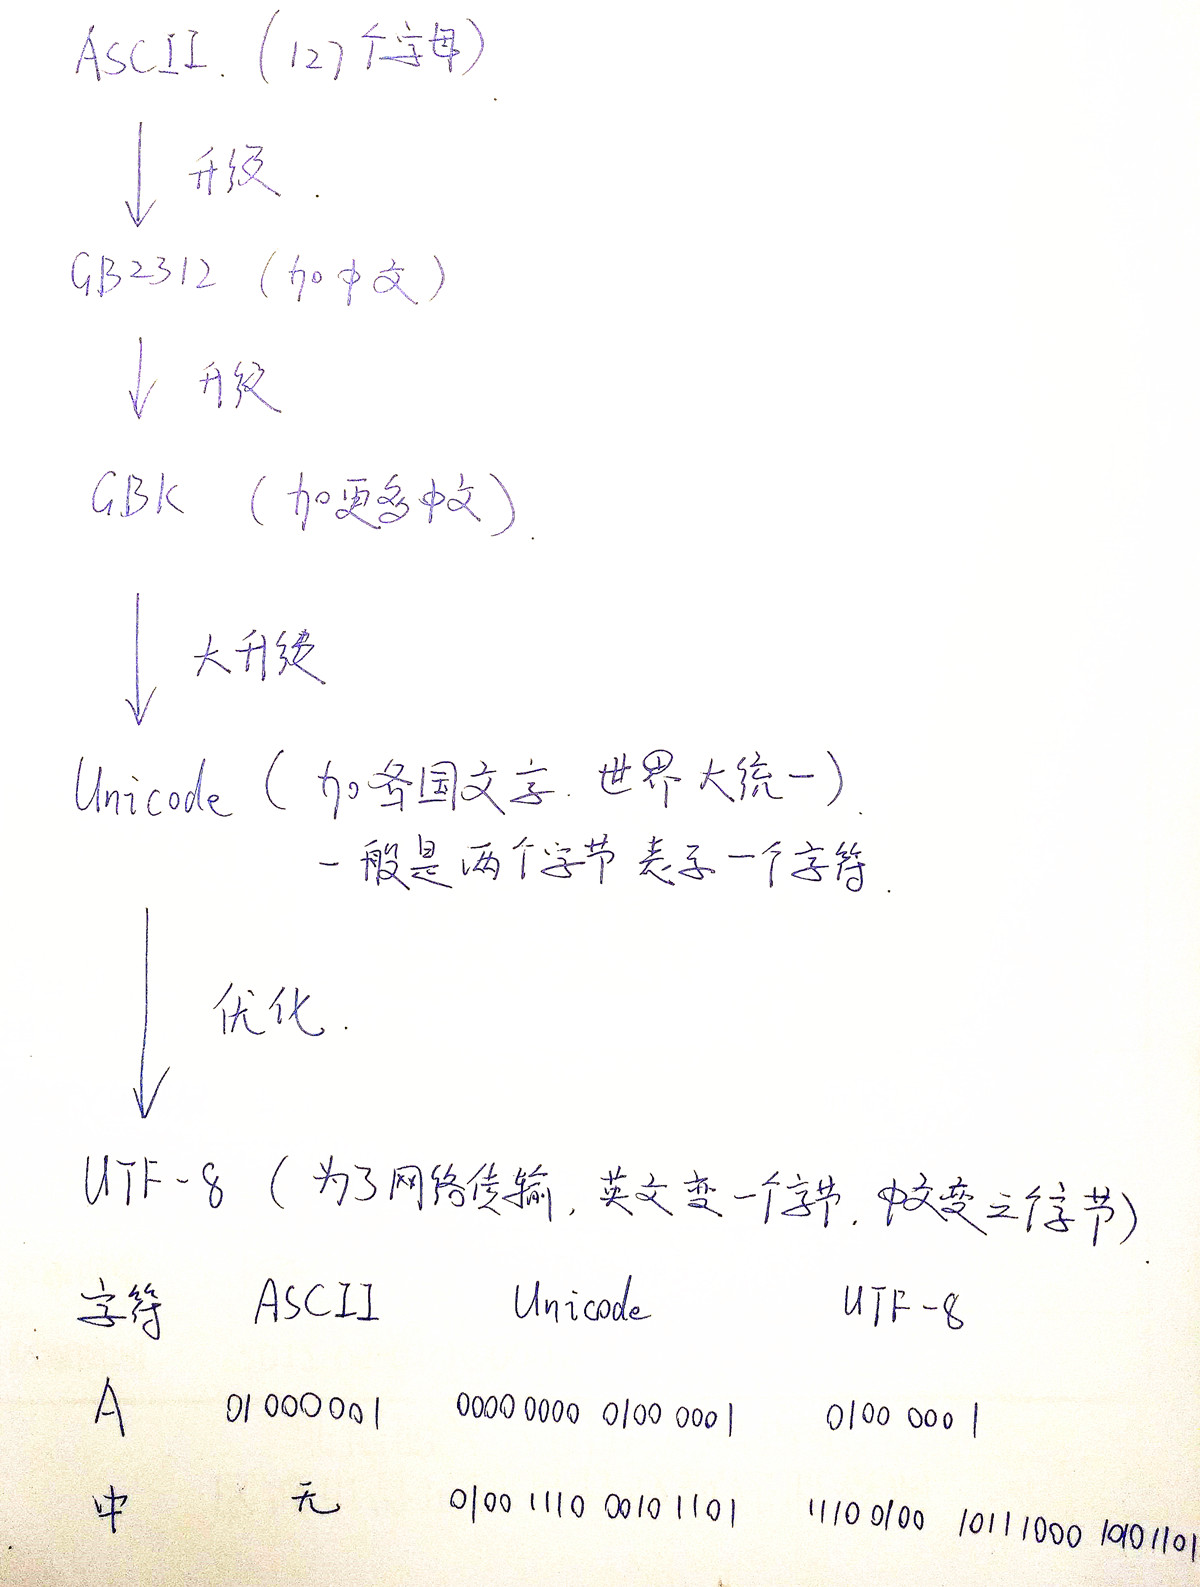 ASCII. (127个字母)
升级.
GB2312 (加中文)
升级
GBK (加更多中文).
大升级
Unicode (加各国文字. 世界大统一).
一般是两个字节表示一个字符.
优化.
UTF-8 (为了网络传输, 英文变一个字节, 中文变三个字节).
字符 ASCII Unicode UTF-8
A 01000001 00000000 0100 0001 0100 0001
中 无 0100 1110 0010 1101 1110 0100 10111000 10101101